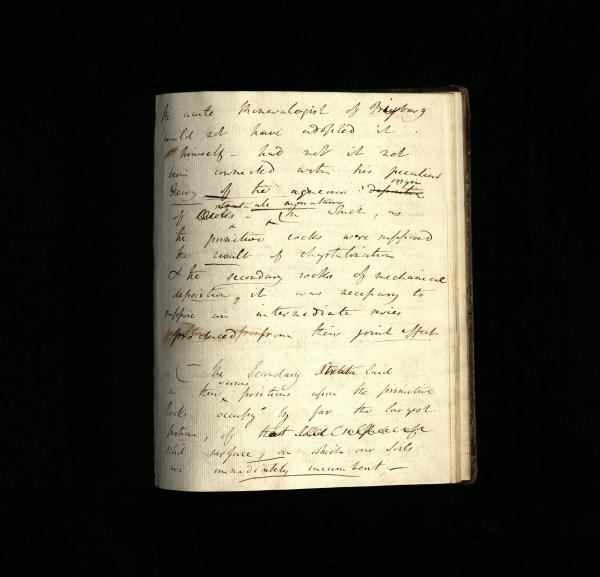 acute Mineralogist of Freyburg
would not have adopted it
himself – had not it not
been connected with his peculiar
theory of the aqueous : deposition origin
of Rocks – (In which, as
the primitive rocks were supposed
the result of chrystalization
& the secondary rocks of mechanical
deposition, it was necessary to
suppose an intermediate series
produced from from their joint effect
(– The Secondary Strata laid
in their various positions upon the primitive
Rocks occupy by far the largest
portion, of that
solid surface, on which our soils
are immediately incumbent. –